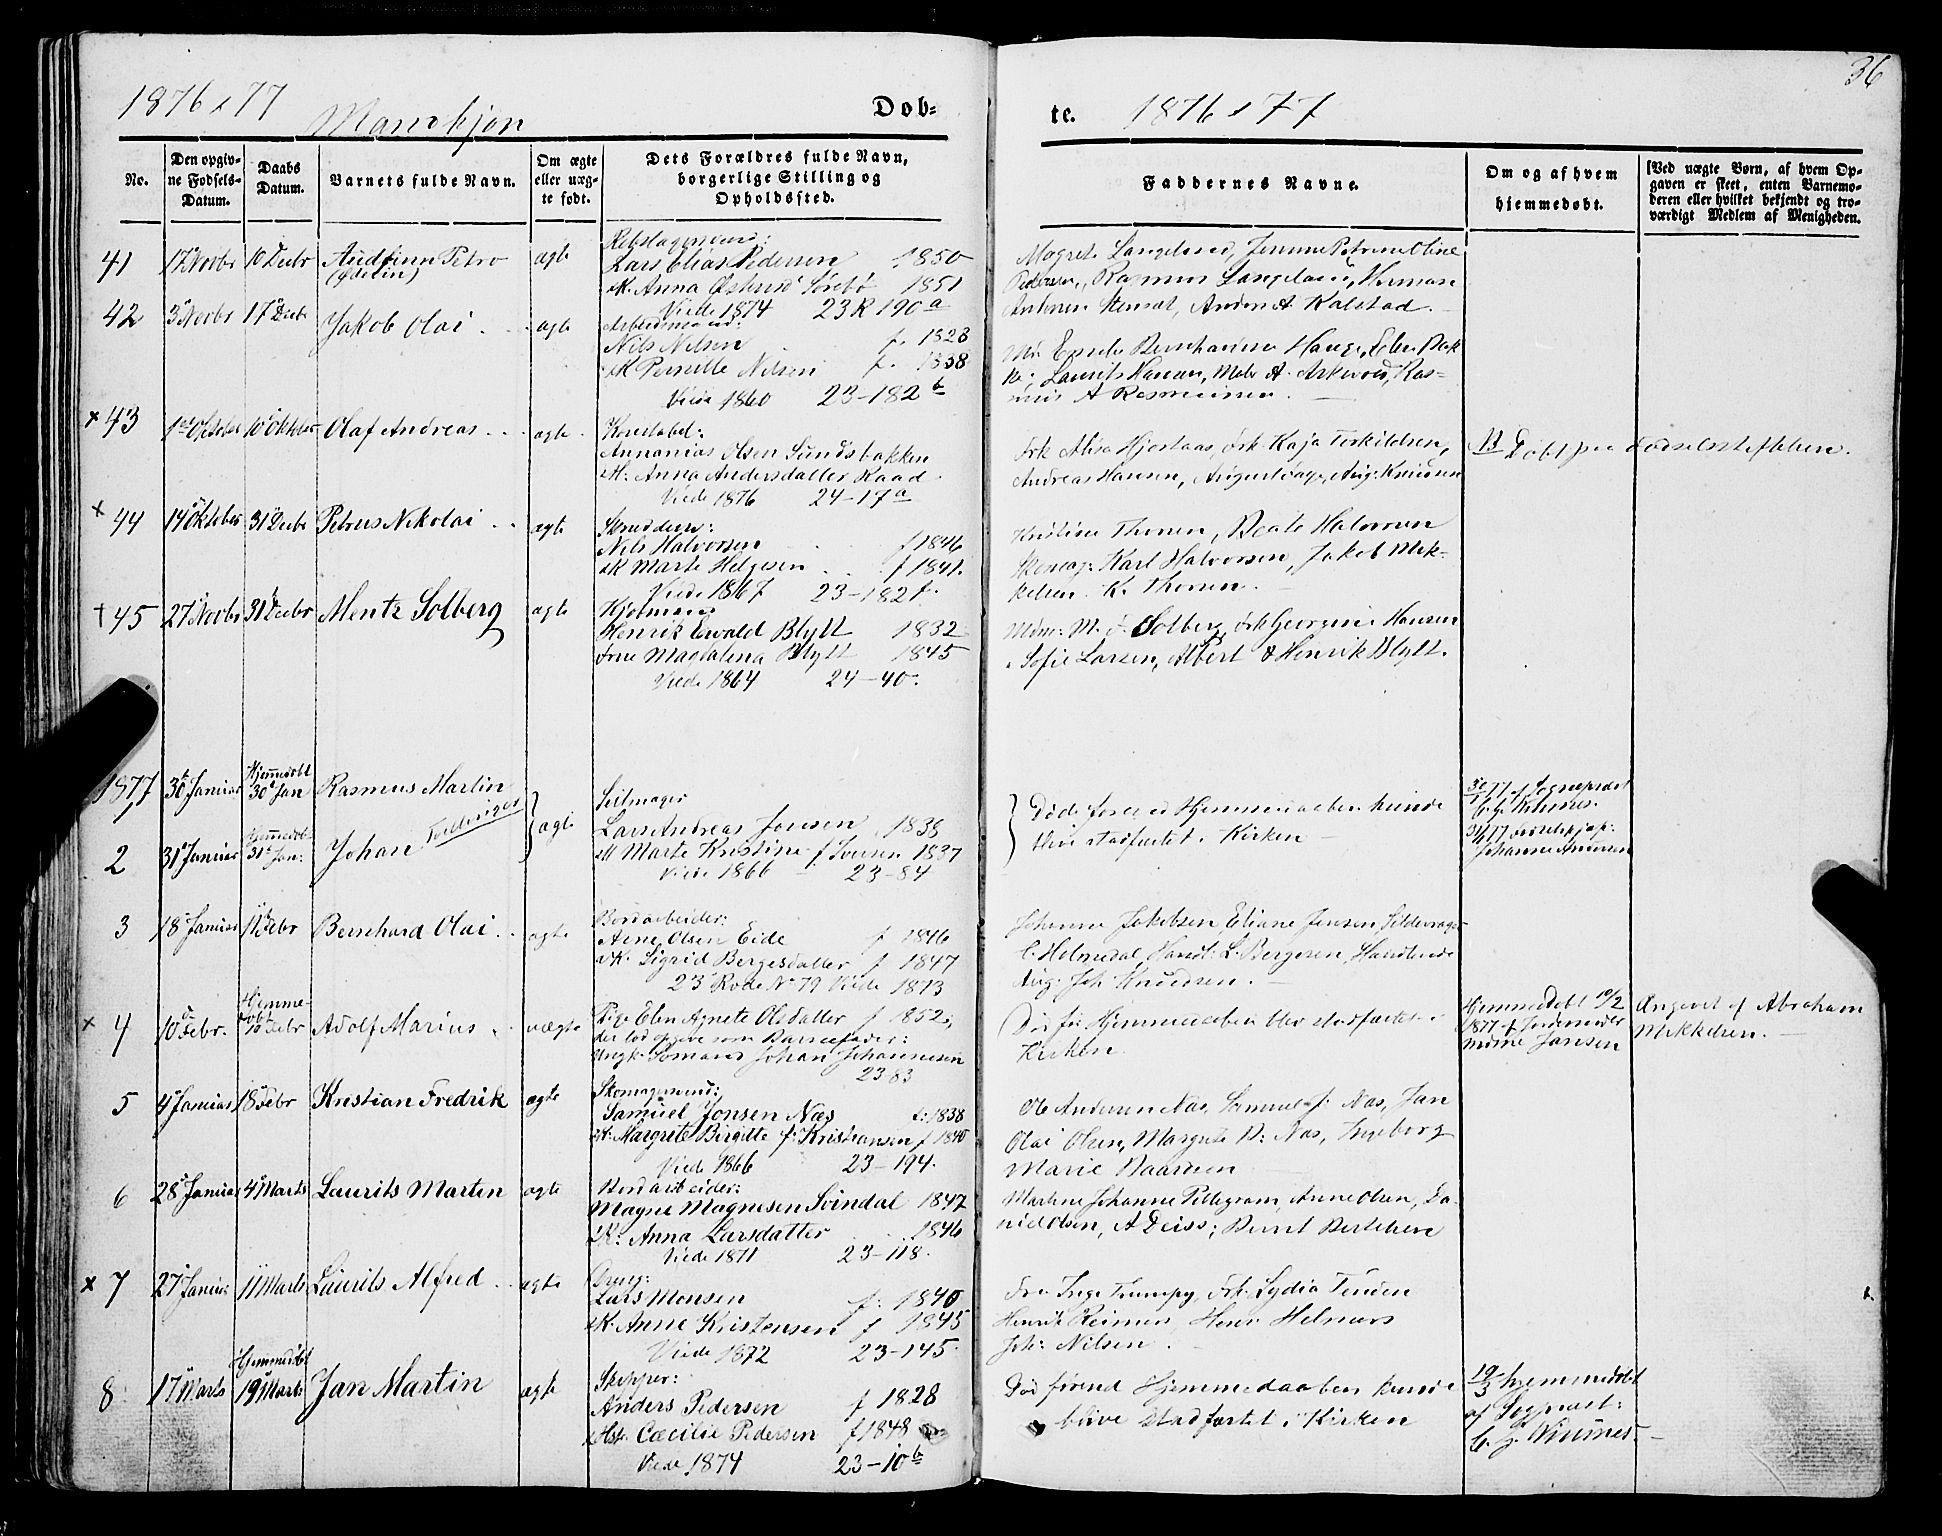 36
1876 & 77 Mandkjøn Dob-
te. 1876 & 77
No.
Den opgiv-
ne Fødsels-
Datum.
Daabs
Datum.
Barnets fulde Navn.
Om ægte
eller uæg-
te født.
Dets Forældres fulde Navn,
borgerlige Stilling og
Opholdssted.
Faddernes Navne.
Om og af hvem
hjemmedøbt.
[Ved uægte Børn, af hvem Op-
gaven er skeet, enten Barnemo-
deren eller hvilket bekjendt og tro-
værdigt Medlem af Menigheden.
41 17 Novbr 10 Decbr Audfinn Petro ægte
Lars Elias Pedersen 1850
K. Anna Østensd Sørebø 1851
Viede 1874 23 R 190 a
Rasmus Langeland, Herman
Andersen Stensat, Anders A. Kalstad.
42 3 Novbr 17 Decbr Jakob Olai ægte
Arbeidsmand:
Nils Nilsen f. 1828
K Pernille Nilsen f. 1838
Viede 1860 23-182 b
Bernhardine Hauge, Elen Bak-
ke, Laurits Hansen, A. Askevold, Ras-
mus A Rasmussen.
x 43 1 Oktober 10 Oktober Olaf Andreas ægte
Konstabel:
Annanias Olsen Sundsbakken
K. Anna Andersdatter Raad
Viede 1876 24-17 a
Frk Alisa Hjortaas, Frk. Kaja Terkildsen,
Andreas Hansen, August Aug. Knudsen
Døbt paa Fødselsstiftelsen.
x 44 14 Oktober 31 Decbr Petrus Nikolai ægte
Skrædder:
Nils Halvorsen f 1846
K Marte Helgesen f 1841.
Viede 1867 23-182 f.
Kristine Thorsen, Beate Halvorsen
Karl Halvorsen, Jakob Mik-
kelsen. K. Thorsen.
† 45 27 Novbr 31 Decbr Mentz Solberg ægte
Kjøbmand
Henrik Ewald Blytt 1832
Frue Magdalena Blytt 1845
Viede 1864 24-40.
Solberg, Frk Georgine Hansen
Sofie Larsen, Albert & Henrik Blytt.
1877 30 Januar Hjemmedøbt
30 Jan Rasmus Martin
Tvillinger ægte
2 31 Januar Hjemmedøbt
31 Jan: Johan
Seilmager
Lars Andreas Jonsen 1838
K Marte Kristine f Iversen 1837
Viede 1866 23-84
Døde forend Hjemmedaaben kunde
blive stadfæstet i Kirken
30/1 77 af Sognepræst
31/1 77 Fødselshjælp:
Johanne Andersen
3 18 Januar 11 Febr Bernhard Olai ægte
Bordarbeider:
Arne Olsen Eide f 1846
K. Sigrid Bergesdatter f 1847
23 Rode No 79 Viede 1873
Johanne Jakobsen, Eliane Jensen,
L. Bergesen,
Aug: Joh Knudsen.
x 4 10 Febr. Hjemme-
døbt
10 Febr Adolf Marius uægte
Pige Elen Agnete Olsdatter f 1852,
der lod opgive som Barnefader:
Ungk. Sømand Johan Johannesen
23 83
Død før Hjemmedaaben blev stadfæstet i
Kirken
Hjemmedøbt 10/2
1877 af Jordemoder
mdme Jansen
Angivet af Abraham
Mikkelsen.
5 4 Januar 18 Febr Kristian Fredrik ægte
Skomagersvend:
Samuel Jonsen Næs f: 1838
K. Margrete Birgitte f: Kristiansen f 1840
Viede 1866 23-194.
Ole Andersen Næs, Sammel J: Næs, Jan
Olai Olsen, Margrete B: Næs, Ingeborg
Marie Baardsen
6 28 Januar 4 Marts Laurits Martin ægte
Bordarbeider:
Magne Magnesen Svindal 1847
K: Anna Larsdatter 1846
Viede 1871 23-118.
Martine Johanne Pillegram, Anne Olsen, Da-
niel Olsen, A Deiss, Berent Bertelsen
x 7 27 Januar 11 Marts Laurits Alfred ægte
Lars Monsen f: 1840
K. Anne Kristensen f 1845
Viede 1872 23-145.
Fru Inge Trumpy, Frk. Lydia
Henrik Reimers, Henr Helmers
Joh: Nilsen.
8 17 Marts Hjemmedøbt
19 Marts Jan Martin ægte
Skipper:
Anders Pedersen f 1828
Hst. Cæcilie Pedersen f 1848
Viede 1874 23-10 b
Død førend Hjemmedaaben kunde
blive stadfæstet i Kirken
19/3 hjemmedøbt
af Sognpræst: